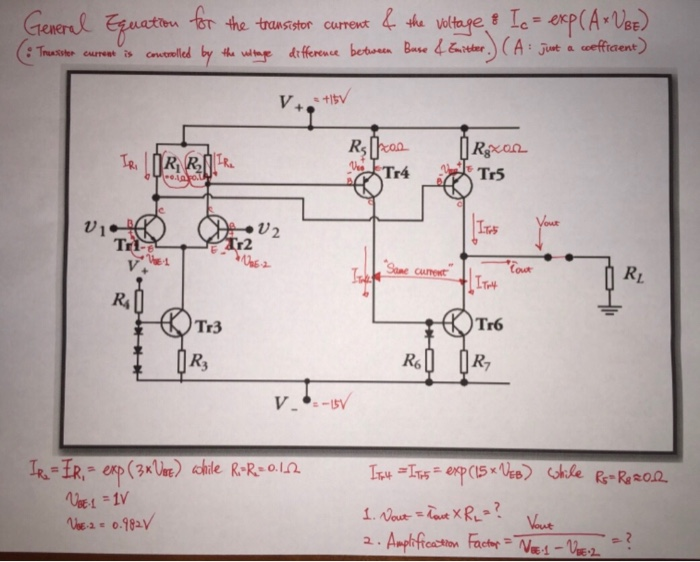 General Equation for the transistor current & the voltage : Ic = exp(A×VBE)
(∵ Transistor current is controlled by the voltage difference between Base & Emitter.) (A : just a coefficient)
V+ = +15V
IR1 R1 R2 IR2
R5 ≈0Ω R8 ≈0Ω
Tr4 Tr5
υ1 υ2
Tr1 Tr2
VBE·1 VBE·2
V+
R4
Tr3
R3
ITr5 Vout
ITr4 "Same current" iout RL
ITr4
Tr6
R6 R7
V- = -15V
IR2 = IR1 = exp(3×VBE) while R1=R2=0.1Ω
VBE·1 = 1V
VBE·2 = 0.982V
ITr4 = ITr5 = exp(15×VEB) while R5=R8≈0Ω
1. Vout = iout × RL = ?
2. Amplification Factor = Vout / VBE·1 - VBE·2 = ?